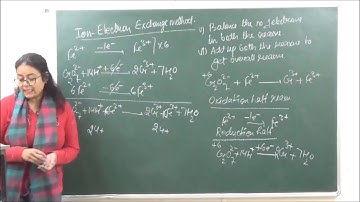 Ion-Electron Exchange method.
Fe²⁺ —-1e⁻→ Fe³⁺ ] ×6
Cr₂O₇²⁻ + 14H⁺ + 6e⁻ → 2Cr³⁺ + 7H₂O
6Fe²⁺ —-6e⁻→ 6Fe³⁺
+ 14H⁺ + 6Fe²⁺ → 2Cr³⁺ + 6Fe³⁺ + 7H₂O
24+ 24+
Balance the no. of electrons
in both the reaxn
Add up both the reaxn to
get overall reaxn
+6
Cr₂O₇²⁻ + Fe²⁺ → Cr³⁺ + Fe³⁺
Oxidation half reaxn
Fe²⁺ —-1e⁻→ Fe³⁺
Reduction half
+6
Cr₂O₇²⁻ + 14H⁺ —+6e⁻→ 2Cr³⁺ + 7H₂O